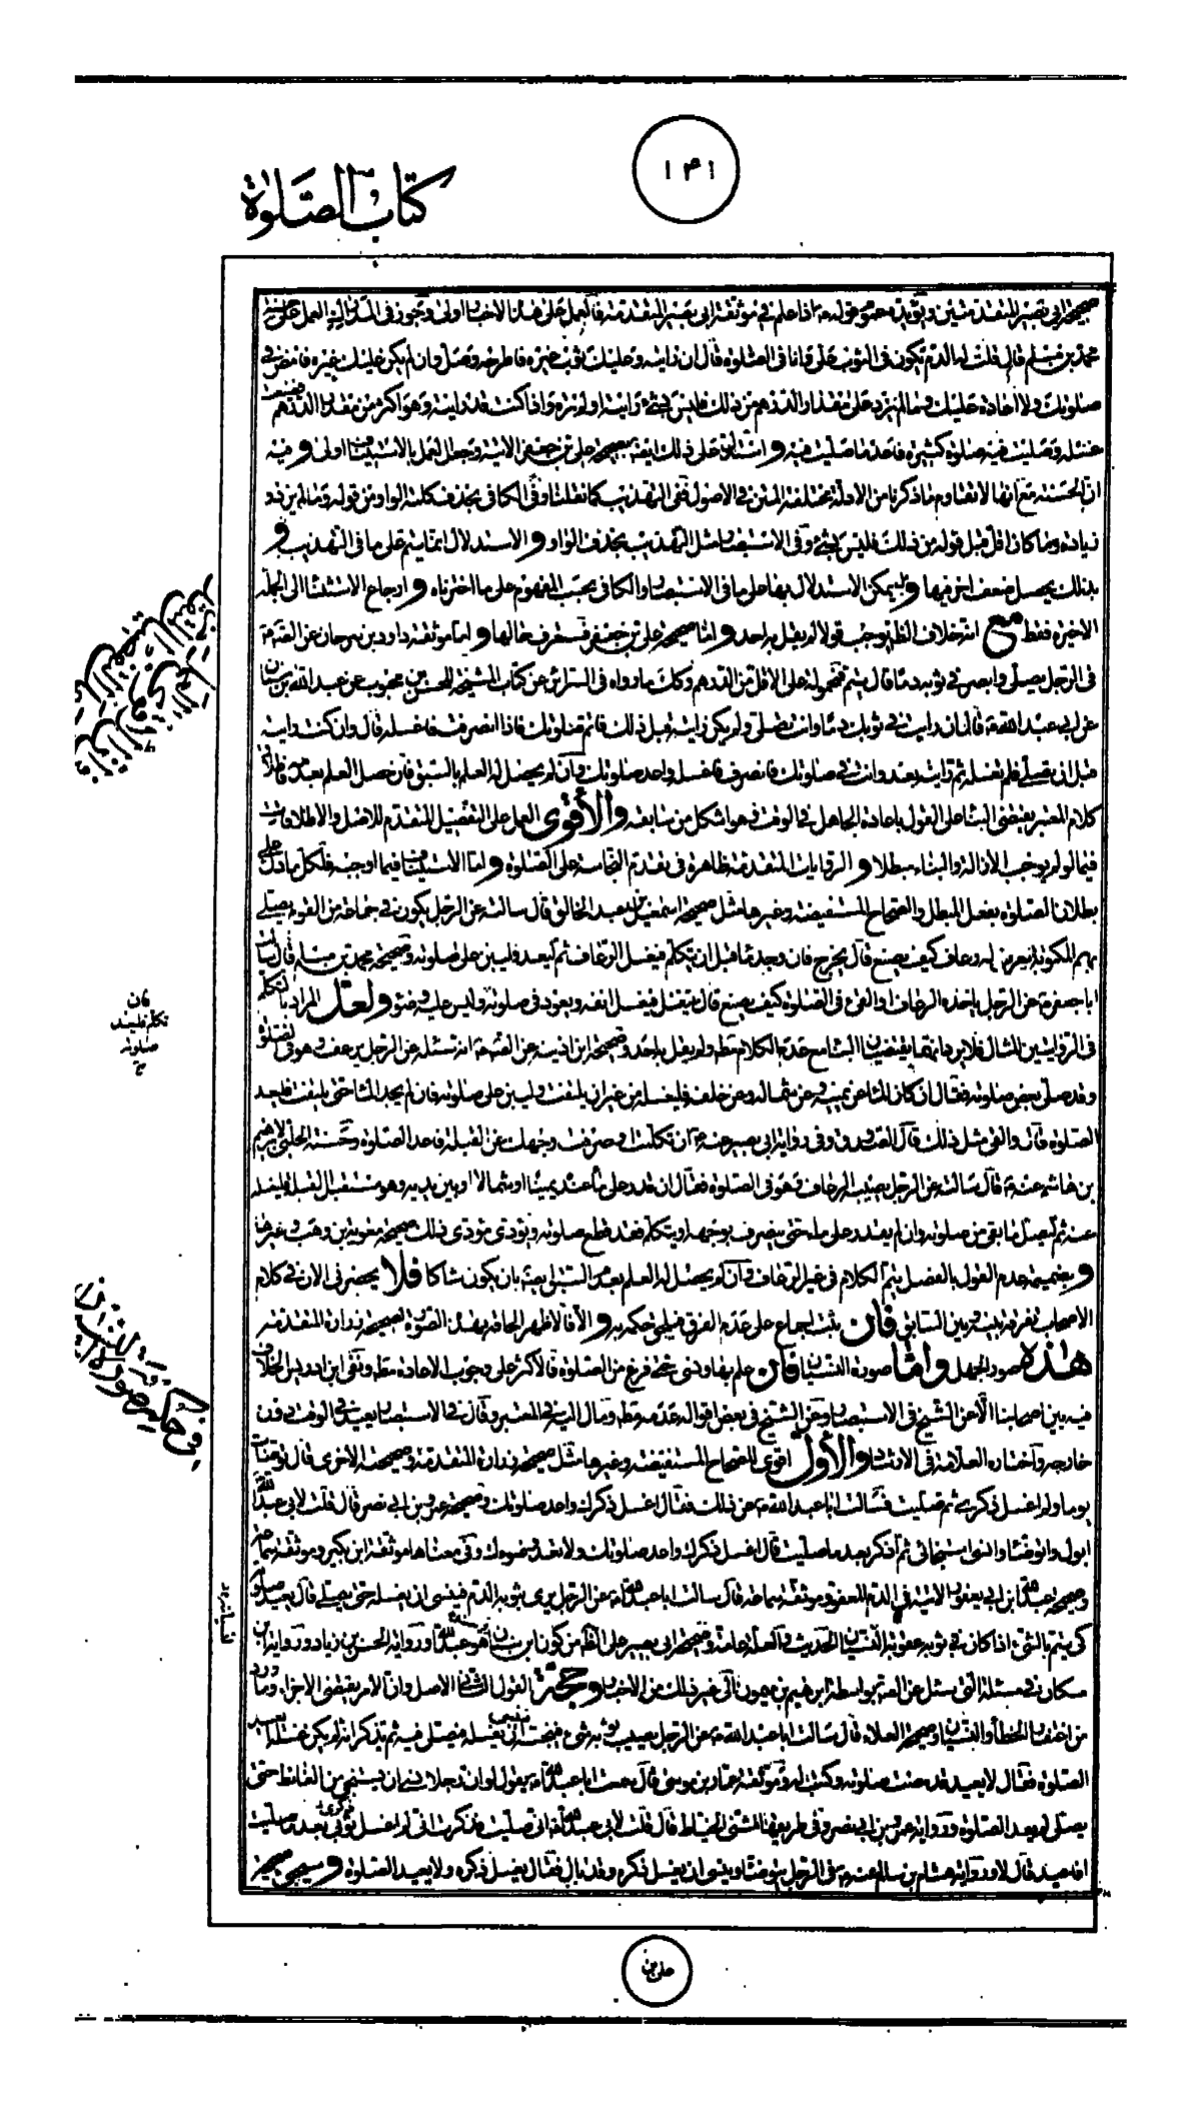 ١٣١
كتاب الصلوة
صحيحة ابى بصير المتقدمتين ويؤيده عموم قوله اذا علم فى موثقة ابى بصير المتقدمة فالعمل على هذه الاخبار اولى وتجوز فى العمل على
محمد بن مسلم قال قلت له الدم يكون فى الثوب على وانا فى الصلوة قال ان رايته وعليك ثوب غيره فاطرحه وصل وان لم يكن عليك غيره فامض فى
صلوتك ولا اعادة عليك وما لم يزد على مقدار الدرهم من ذلك فليس بشئ رايته او لم تره واذا كنت قد رايته وهو اكثر من مقدار الدرهم فضيعت
غسله وصليت فيه صلوة كثيرة فاعد ما صليت فيه و على ذلك ايضا بصحيحة على بن جعفر الاتية وجعل العمل بالاستيناف اولى و فيه
ان الحسنة مع انها لا تقاوم ما ذكرنا من الادلة مختلفة المتن فى الاصول ففى التهذيب كما نقلنا وفى الكافى بحذف كلمة الواو من قوله وما لم يزد و
زيادة وما كان اقل قبل قوله من ذلك فليس بشئ وفى الاستبصار مثل التهذيب بحذف الواو و الاستدلال انما يتم على ما فى التهذيب و
بذلك يحصل ضعف اخر فيها و يمكن الاستدلال بها على ما فى الاستبصار والكافى بحسب المفهوم على ما اخترناه و ارجاع الاستثناء الى الجملة
الاخيرة فقط مع انه خلاف الظاهر يوجب قولا لم يقل به احد و اما صحيحة على بن جعفر فستعرف حالها و اما موثقة داود بن سرحان عن الصادق
فى الرجل يصلى وابصر فى ثوبه دما قال يتم فمحمولة على الاقل من الدرهم وكذا ما رواه فى السرائر عن كتاب المشيخة للحسن بن محبوب عن عبد الله بن سنان
عن ابى عبد الله قال ان رايت فى ثوبك دما وانت تصلى ولم تكن رايته قبل ذلك فاتم صلوتك فاذا انصرفت فاغسله قال وان كنت رايته
قبل ان تصلى فلم تغسله ثم رايته بعد وانت فى صلوتك فانصرف فاغسله واعد صلوتك وان لم يحصل له العلم بالسبق فان حصل العلم بعد
كلام المعتبر يقتضى البناء على القول باعادة الجاهل فى الوقت فهو اشكل من سابقه والأقوى العمل على التفصيل المتقدم للاصل والاطلاقات
فيما لو لم يوجب الازالة والبناء مبطلا و الروايات المتقدمة ظاهرة فى تقدم النجاسة على الصلوة و اما الاستيناف فيما اوجبه فلكل ما دل على
بطلان الصلوة بفعل المبطل والصحاح المستفيضة وغيرها مثل صحيحة اسمعيل بن عبد الخالق قال سالته عن الرجل يكون فى جماعة من القوم يصلى
بهم المكتوبة فيعرض له رعاف كيف يصنع قال يخرج فان وجد ماء قبل ان يتكلم فيغسل الرعاف ثم ليعد وليبن على صلوته وصحيحة محمد بن مسلم قال سالت
ابا جعفر عن الرجل ياخذه الرعاف او القئ فى الصلوة كيف يصنع قال ينفتل فيغسل انفه ويعود فى صلوته وليس عليه وضوء ولعل المراد بالتكلم
فى الروايتين المثال فلا يرد انهما يقتضيان البناء مع عدم الكلام مطلقا ولم يقل به احد وصحيحة ابن اذينة عن الصادق انه سئله عن الرجل يرعف وهو فى الصلوة
وقد صلى بعض صلوته فقال ان كان الماء عن يمينه وعن شماله وعن خلفه فليغسله من غير ان يلتفت وليبن على صلوته فان لم يجد الماء حتى يلتفت فليعد
الصلوة قال والقئ مثل ذلك قال الصدوق وفى رواية ابى بصير عنه ان تكلمت او صرفت وجهك عن القبلة فاعد الصلوة وحسنة الحلبى لابرهيم
بن هاشم عنه قال سالته عن الرجل يصيبه الرعاف وهو فى الصلوة فقال ان قدر على ماء عنده يمينا او شمالا او بين يديه وهو مستقبل القبلة فليغسله
عنه ثم ليصل ما بقى من صلوته وان لم يقدر على ماء حتى ينصرف بوجهه او يتكلم فقد قطع صلوته ويؤدى مؤدى ذلك صحيحة معوية بن وهب وغيرها
و بضميمة عدم القول بالفصل يتم الكلام فى غير الرعاف وان لم يحصل له العلم بعد السبق ايضا بان يكون شاكا فلا يحضرنى الان فى كلام
الاصحاب تفرقة بينه وبين السابق فان ثبت اجماع على عدم الفرق فيلحق حكمه به و الا فالاظهر الحاقه بهذه الصورة لصحيحة زرارة المتقدمة
هذه صور الجهل واما صورة النسيان فان علم بها ونسى حتى فرغ من الصلوة فالاكثر على وجوب الاعادة مطلقا ونفى ابن ادريس الخلاف
فيه بين اصحابنا الا عن الشيخ فى الاستبصار وعن الشيخ فى بعض اقواله عدمه مطلقا ومال اليه فى المعتبر وقال فى الاستبصار يعيد فى الوقت دون
خارجه واختاره العلامة فى الارشاد والأول اقوى للصحاح المستفيضة وغيرها مثل صحيحة زرارة المتقدمة وصحيحته الاخرى قال توضات
يوما ولم اغسل ذكرى ثم صليت فسالت ابا عبد الله عن ذلك فقال اغسل ذكرك واعد صلوتك وصحيحة عمرو بن ابى نصر قال قلت لابى عبد الله
ابول واتوضا وانسى استنجائى ثم اذكر بعد ما صليت قال اغسل ذكرك واعد صلوتك ولا تعد وضوءك وفى معناها موثقة ابن بكير وموثقة سماعة
وصحيحة عبد الله ابن ابى يعفور الاتية فى الدم المعفو وموثقة سماعة قال سالت ابا عبد الله عن الرجل يرى بثوبه الدم فينسى ان يغسله حتى يصلى قال يعيد صلوته
كى يهتم بالشئ اذا كان فى ثوبه عقوبة لنسيانه الحديث والعلة عامة وصحيحة ابى بصير على الظاهر من كون ابن سنان هو عبد الله ورواية الحسن بن زياد ورواية ابن
مسكان فى مسئلة التى سئل عن الصادق بواسطة ابرهيم بن ميمون الى غير ذلك من الاخبار وحجة القول الثانى الاصل وان الامر يقتضى الاجزاء وما ورد
من اغتفار الخطأ والنسيان وصحيحة العلاء قال سالت ابا عبد الله عن الرجل يصيب ثوبه شئ فينجسه فينسى ان يغسله فيصلى فيه ثم تذكر انه لم يكن غسله ايعيد
الصلوة فقال لا يعيد قد مضت صلوته وكتبت له وموثقة عمار بن موسى قال سمعت ابا عبد الله يقول لو ان رجلا نسى ان يستنجى من الغائط حتى
يصلى لم يعد الصلوة ورواية عمرو بن ابى نصر وفى طريقها المثنى الحناط قال قلت لابى عبد الله انى صليت فذكرت انى لم اغسل ذكرى بعد ما صليت
افاعيد قال لا ورواية هشام بن سالم عنه فى الرجل يتوضا وينسى ان يغسل ذكره وقد بال فقال يغسل ذكره ولا يعيد الصلوة و
فان
تكلم فليعد
صلوته
فى حكم صورة النسيان
على بن